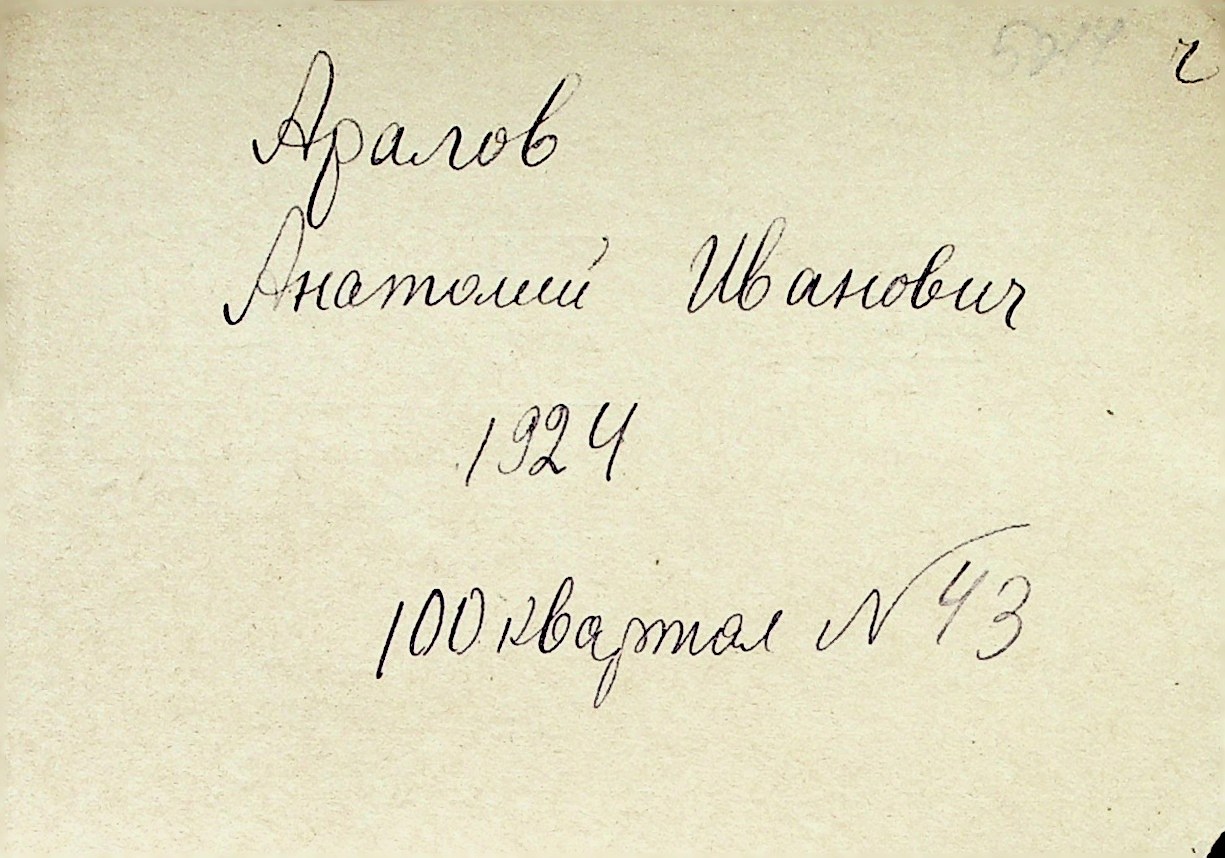 Аралов
Анатолий Иванович
1924
100 квартал N 43